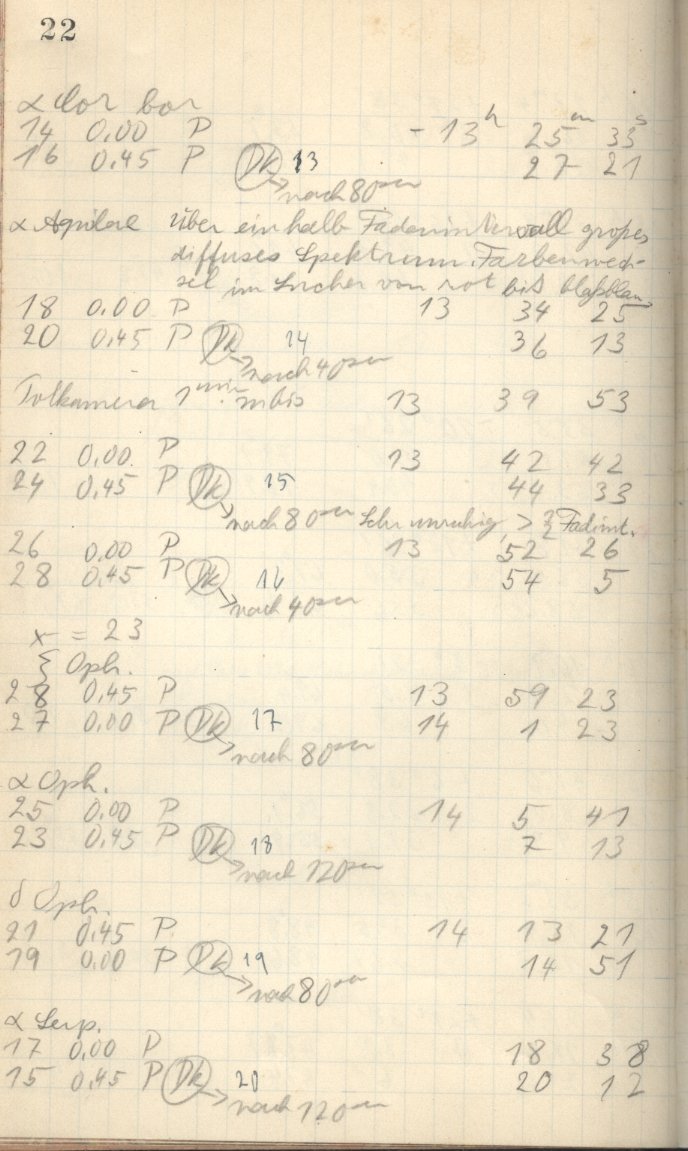 22
α Cor bor
14 0.00 P - 13h 25m 33s
16 0.45 P Pk 13 27 21
→ nach 80sec
α Aquilae über ein halb Fadenintervall großes
diffuses Spektrum. Farbenwech-
sel im Sucher von rot bis blaßblau
18 0.00 P 13 34 25
20 0.45 P Pk 14 36 13
→ nach 40sec
1min 13 39 53
22 0.00 P 13 42 42
24 0.45 P Pk 15 44 33
→ nach 80sec Sehr unruhig, > Fadint.
26 0.00 P 13 52 26
28 0.45 P Pk 16 54 5
→ nach 40sec
x = 23
ξ Oph.
28 0.45 P 13 59 23
27 0.00 P Pk 17 14 1 23
→ nach 80sec
α Oph.
25 0.00 P 14 5 41
23 0.45 P Pk 18 7 13
→ nach 120sec
δ Oph.
21 0.45 P. 14 13 21
19 0.00 P Pk 19 14 51
→ nach 80sec
α Serp.
17 0.00 P 18 38
15 0.45 P Pk 20 20 12
→ nach 120sec